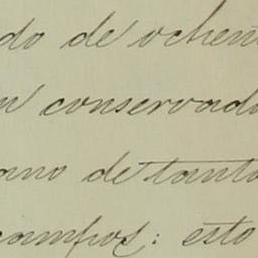 do de ochent
n conservado
ano de tanto
campos: esto